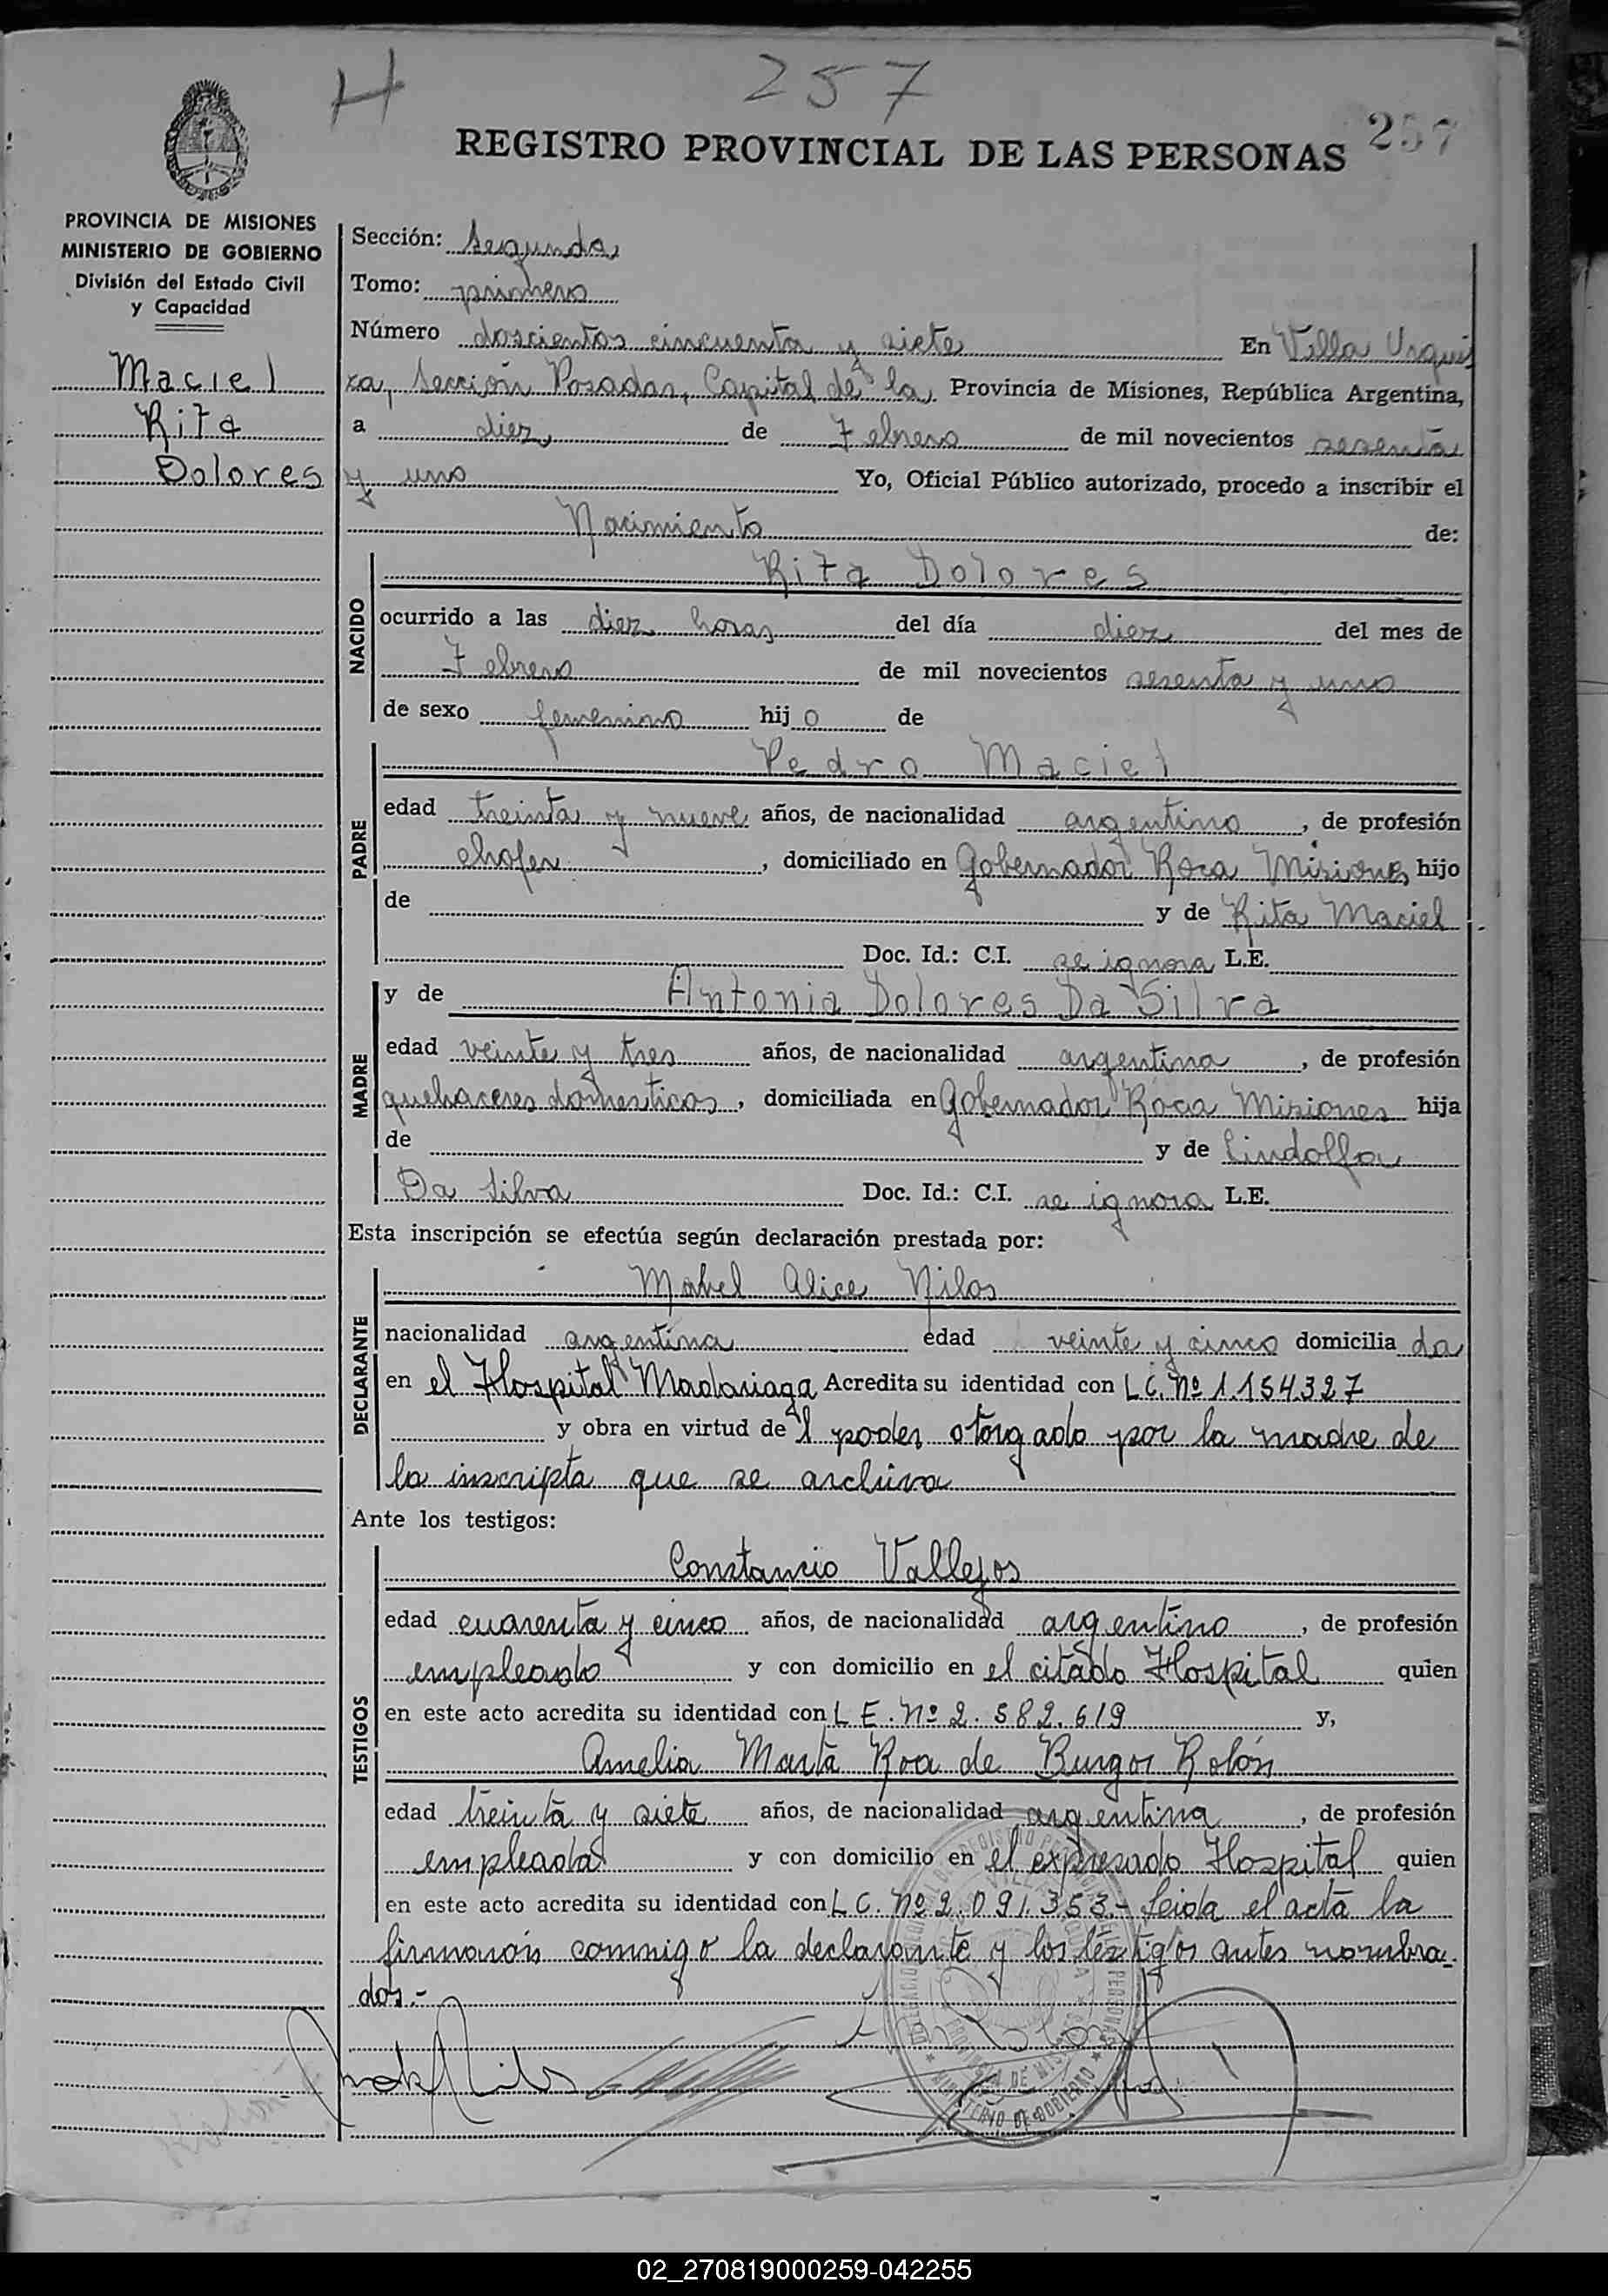 H
257
257
REGISTRO PROVINCIAL DE LAS PERSONAS
PROVINCIA DE MISIONES
MINISTERIO DE GOBIERNO
División del Estado Civil
y Capacidad
Maciel
Rita
Dolores
Sección: Segunda
Tomo: primero
Número doscientos cincuenta y siete En Villa Urqui
za, Sección Posadas, Capital de la Provincia de Misiones, República Argentina,
a diez de Febrero de mil novecientos sesenta
y uno Yo, Oficial Público autorizado, procedo a inscribir el
Nacimiento de:
NACIDO
Rita Dolores
ocurrido a las diez horas del día diez del mes de
Febrero de mil novecientos sesenta y uno
de sexo femenino hijo de
PADRE
Pedro Maciel
edad treinta y nueve años, de nacionalidad argentino, de profesión
chofer, domiciliado en Gobernador Roca Misiones hijo
de y de Rita Maciel
Doc. Id.: C.I. se ignora L.E.
MADRE
y de Antonia Dolores Da Silva
edad veinte y tres años, de nacionalidad argentina, de profesión
quehaceres domesticos, domiciliada en Gobernador Roca Misiones hija
de y de Lindolfa
Da Silva Doc. Id.: C.I. se ignora L.E.
Esta inscripción se efectúa según declaración prestada por:
DECLARANTE
Mabel Alice Nilos
nacionalidad argentina edad veinte y cinco domicilia da
en el Hospital Madariaga Acredita su identidad con L.C. Nº 1.154.327
y obra en virtud del poder otorgado por la madre de
la inscripta que se archiva
Ante los testigos:
TESTIGOS
Constancio Vallejos
edad cuarenta y cinco años, de nacionalidad argentino, de profesión
empleado y con domicilio en el citado Hospital quien
en este acto acredita su identidad con L E. Nº 2.582.619 y,
Amelia Marta Roa de Burgos Rolón
edad treinta y siete años, de nacionalidad argentina, de profesión
empleada y con domicilio en el expresado Hospital quien
en este acto acredita su identidad con L C. Nº 2.091.353.- Leida el acta la
firmaron conmigo la declarante y los testigos antes nombra
dos.-
MINISTERIO DE GOBIERNO
02_270819000259-042255